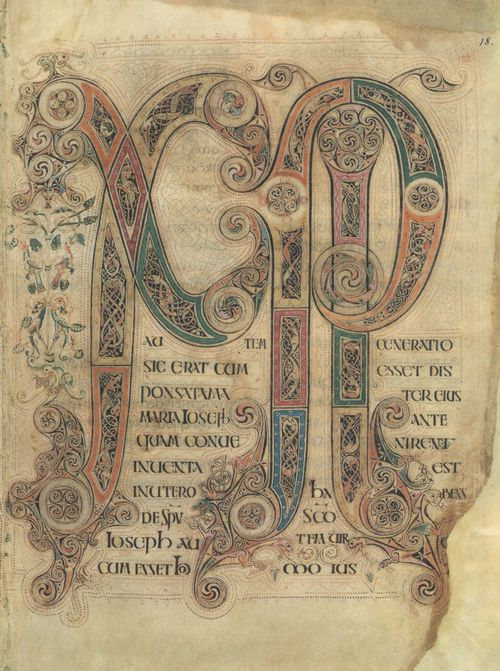 18.
XPI
AU TEM GENERATIO
SIC ERAT CUM ESSET DIS
PONSATA MA TER EIUS
MARIA IOSEPH ANTE
QUAM CONUE NIRENT
INUENTA EST
IN UTERO ha BENS
DE SPU SCO
IOSEPH AU TEM UIR
CUM ESSET ho MO IUS